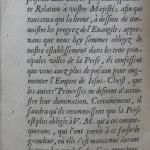 te Relation à vostre Majesté, afin que
tous ceux qui la liront, à dessein de con-
noistre les progrez de l'Euangile, appren-
nent que nous luy sommes obligez de
nostre establissement dans les trois prin-
cipales villes de la Perse, & confessent
que vous n'auez plus de passion pour aug-
menter l'Empire de Iesus-Christ, que
les autres Princesses ne desirent d'ac-
croistre leur domination. Certainement, il
faudra qu'ils reconnoissent que la Perse
est plus obligée à V. M. qu'à ces conque-
querans, qui l'ont portée à ce faiste de
grandeur, où elle s'est maintenue durant